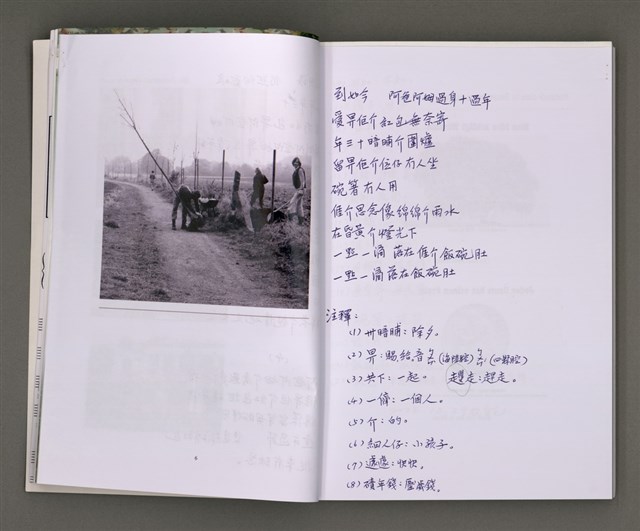 到如今　阿爸阿姆過身十過年
愛畀佢介紅包無奈寄
年三十暗晡介圍爐
留畀佢介位仔冇人坐
碗箸冇人用
𠊎介思念像綿綿介雨水
在昏黃介燈光下
一點一滴 落在𠊎介飯碗肚
一點一滴落在飯碗肚
注釋：
(1) 卅暗晡：除夕。
(2) 畀：賜給，音 (海陸腔) (四縣腔)
(3) 共下：一起。　走：起走。
(4) 一儕：一個人。
(5) 介：的。
(6) 細人仔：小孩子。
(7) 遽遽：快快。
(8) 磧年錢：壓歲錢。